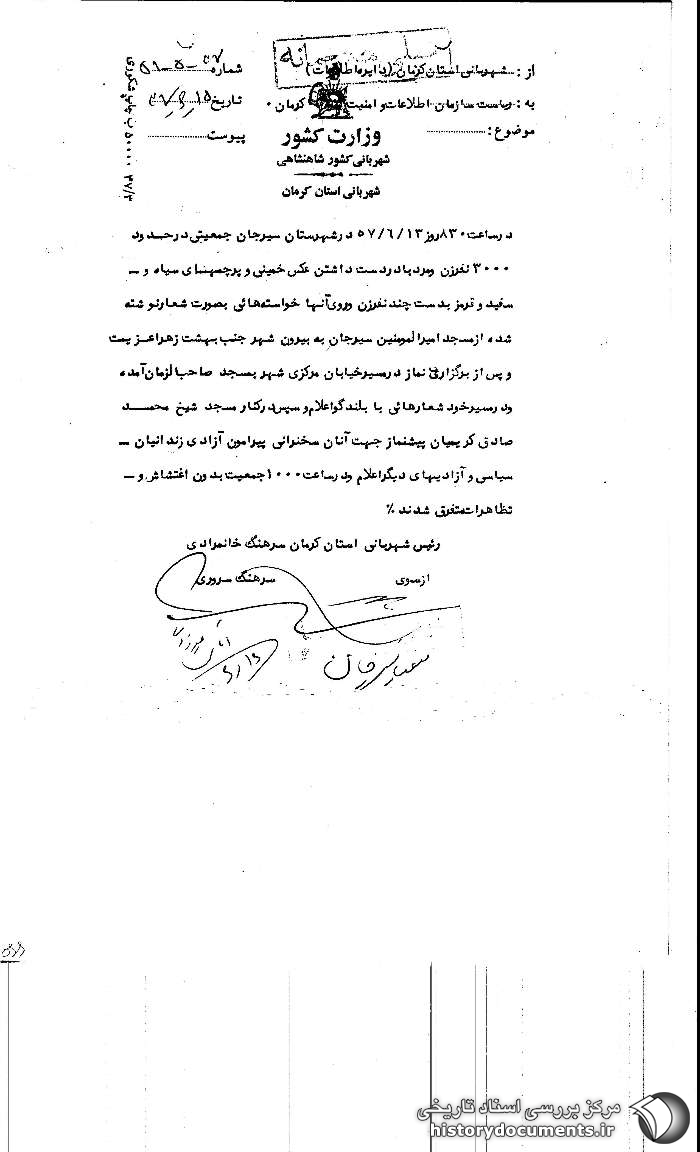 از : شهربانی استان کرمان (دایره اطلاعات)
به : ریاست سازمان اطلاعات و امنیت کرمان ۰
موضوع :
شماره
تاریخ
پیوست
وزارت کشور
شهربانی کشور شاهنشاهی
شهربانی استان کرمان
در ساعت ۸۳۰ روز ۵۷/۶/۱۳ در شهرستان سیرجان جمعیتی در حدود
۳۰۰۰ نفر زن و مرد با در دست داشتن عکس خمینی و پرچمهای سیاه و –
سفید و قرمز بدست چند نفر زن و روی آنها خواسته‌هائی بصورت شعار نوشته
شده از مسجد امیرالمومنین سیرجان به بیرون شهر جنب بهشت زهرا عزیمت
و پس از برگزاری نماز در مسیر خیابان مرکزی شهر بمسجد صاحب الزمان آمده
و در مسیر خود شعارهائی با بلندگو اعلام و سپس در کنار مسجد شیخ محمد
صادق کریمیان پیشنماز جهت آنان سخنرانی پیرامون آزادی زندانیان –
سیاسی و آزادیهای دیگر اعلام و در ساعت ۱۰۰۰ جمعیت بدون اغتشاش و –
تظاهرات متفرق شدند ٪
رئیس شهربانی استان کرمان سرهنگ خانمرادی
از سوی سرهنگ سروری
مرکز بررسی اسناد تاریخی
historydocuments.ir